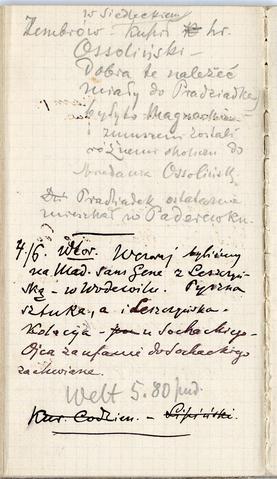 w Siedleckiem
Zembrów - kupił hr.
Ossoliński -
Dobra te należeć
miały do Pradziadka,
był to Magnat
i zmuszeni zostali
różnemi okolicz. do
sprzedania Ossolińsk.
Pradziadek ostatecznie
mieszkał w Paderewku.
4/6. Wtor. Wczoraj byliśmy
na Mad. Sans Gene z Leszczyń-
ską - w Wodewilu. Pyszna
sztuka, a i Leszczyńska -
Kolacja - u Sochackiego -
Ojca zaufanie do Sochackiego
zachwiane.
Welt 5.80 pud.
Kur. Codzien. - Lipiński.